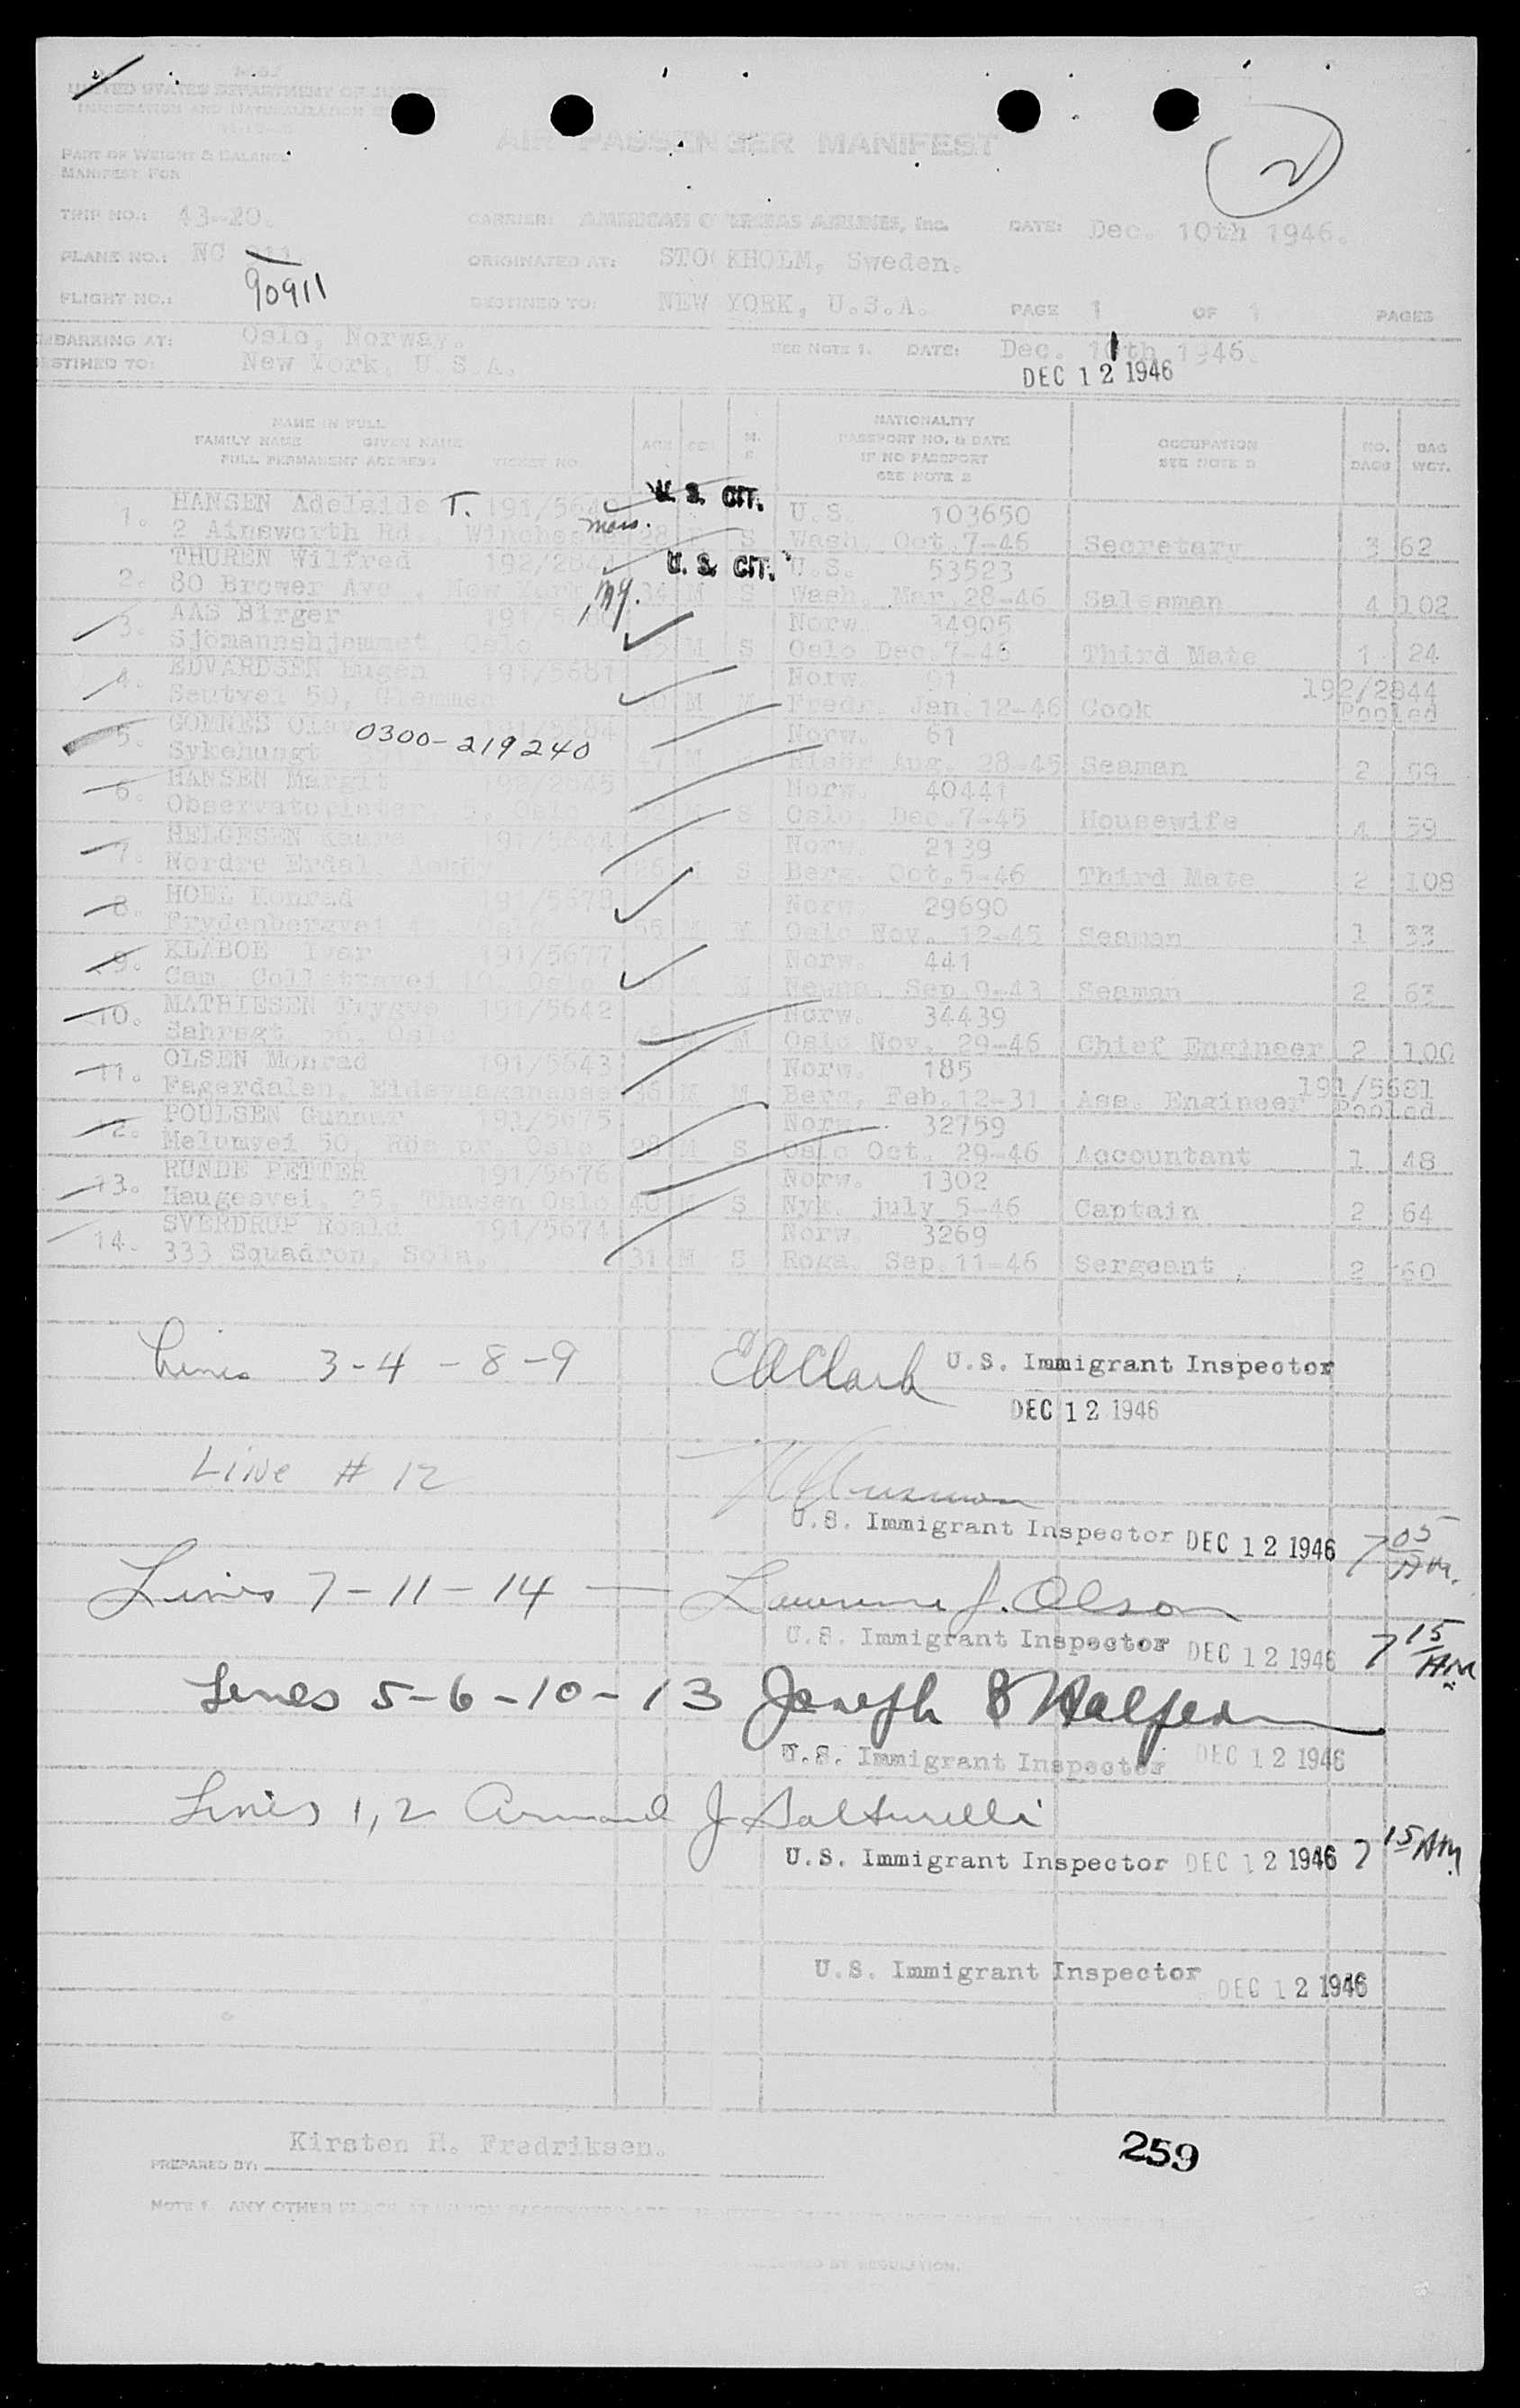 UNITED STATES DEPARTMENT OF JUSTICE
IMMIGRATION AND NATURALIZATION
AIR PASSENGER MANIFEST
2
PART OF WEIGHT & BALANCE
MANIFEST FOR
TRIP NO.: 43-20. CARRIER: AMERICAN OVERSEAS AIRLINES, Inc. DATE: Dec. 10th 1946.
PLANE NO.: NC 911 ORIGINATED AT: STOCKHOLM, Sweden.
90911
FLIGHT NO.: DESTINED TO: NEW YORK, U.S.A. PAGE 1 OF 1 PAGES
EMBARKING AT: Oslo, Norway. SEE NOTE 1. DATE: Dec. 11th 1946.
DESTINED TO: New York, U.S.A. DEC 12 1946
NAME IN FULL NATIONALITY
FAMILY NAME GIVEN NAME AGE SEX M. PASSPORT NO. & DATE OCCUPATION NO. BAG
FULL PERMANENT ADDRESS TICKET NO. S. IF NO PASSPORT SEE NOTE D BAGS WGT.
SEE NOTE 2
1. HANSEN Adelaide T. 191/5640 U. S. CIT. U.S. 103650
2 Ainsworth Rd., Winchester Mass. 28 F S Wash. Oct.7-46 Secretary 3 62
2. THUREN Wilfred 192/2644 U. S. CIT. U.S. 53523
80 Brower Ave., New York N.Y. 34 M S Wash. Mar.28-46 Salesman 4 102
3. AAS Birger Norw. 34905
Sjömannshjemmet, Oslo M S Oslo Dec.7-46 Third Mate 1 24
4. EDVARDSEN Eugen 191/5681 Norw. 91 192/2844
50, Glemmen M M Fredr. Jan.12-46 Cook Pooled
5. GOMNES Olav 0300-219240 Norw. 61
47 M Aug. 28-45 Seaman 2 59
6. HANSEN Margit 192/2645 Norw. 40441
5, Oslo S Oslo, Dec.7-45 Housewife 4 59
7. HELGESEN 191/5644 Norw. 2139
Nordre Erdal, Askøy 26 M S Berg. Oct.5-46 Third Mate 2 108
8. HOEL Konrad 191/5678 Norw. 29690
Frydenbergvei Oslo 56 M M Oslo Nov. 12-45 Seaman 1 33
9. KLABOE Ivar 191/5677 Norw. 441
Cam. Collettsvei 10, Oslo M M Sep.9-43 Seaman 2 63
10. MATHIESEN Trygve 191/5642 Norw. 34439
56, Oslo M Oslo Nov. 29-46 Chief Engineer 2 100
11. OLSEN Monrad 191/5643 Norw. 185 191/5681
Fagerdalen, 36 M M Berg, Feb.12-31 Ass. Engineer Pooled
12. POULSEN Gunnar 191/5675 Norw. 32759
Melumvei 50, Röa pr. Oslo 28 M S Oslo Oct. 29-46 Accountant 1 48
13. RUNDE PETTER 191/5676 Norw. 1302
Haugesvei, 25, Thåsen Oslo 40 M S Nyk. july 5-46 Captain 2 64
14. SVERDRUP Roald 191/5674 Norw. 3269
333 Squadron, Sola. 31 M S Roga. Sep.11-46 Sergeant 2 60
Lines 3-4-8-9 E A Clark U.S. Immigrant Inspector
DEC 12 1946
Line # 12
U.S. Immigrant Inspector DEC 12 1946 7 05 AM.
Lines 7-11-14 — Lawrence J. Olson
U.S. Immigrant Inspector DEC 12 1946 7 15 AM
Lines 5-6-10-13 Joseph B Halpern
U.S. Immigrant Inspector DEC 12 1946
Lines 1,2 Armand J Salturelli
U.S. Immigrant Inspector DEC 12 1946 7 15 AM
U.S. Immigrant Inspector DEC 12 1946
Kirsten H. Fredriksen.
PREPARED BY:
259
NOTE 1. ANY OTHER PLACE AT WHICH PASSENGERS ARE
BY REGULATION.